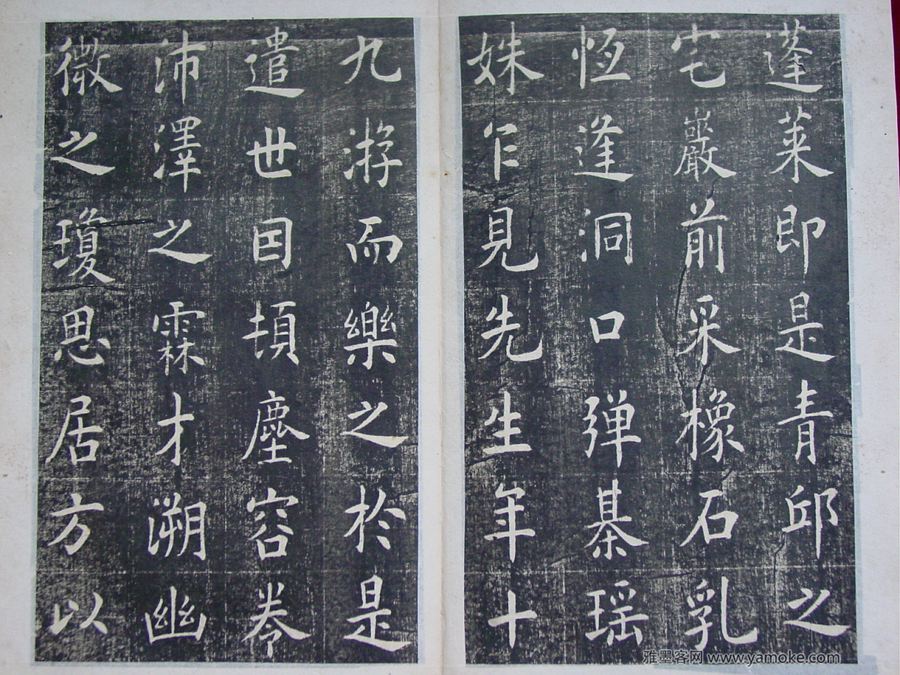 蓬萊即是青邱之
宅巖前采橡石乳
恆逢洞口弹棊瑶
姝乍見先生年十
九游而樂之於是
遣世因頃塵容岑
沛澤之霖才溯幽
微之瓊思居方以
雅墨客网 www.yamoke.com